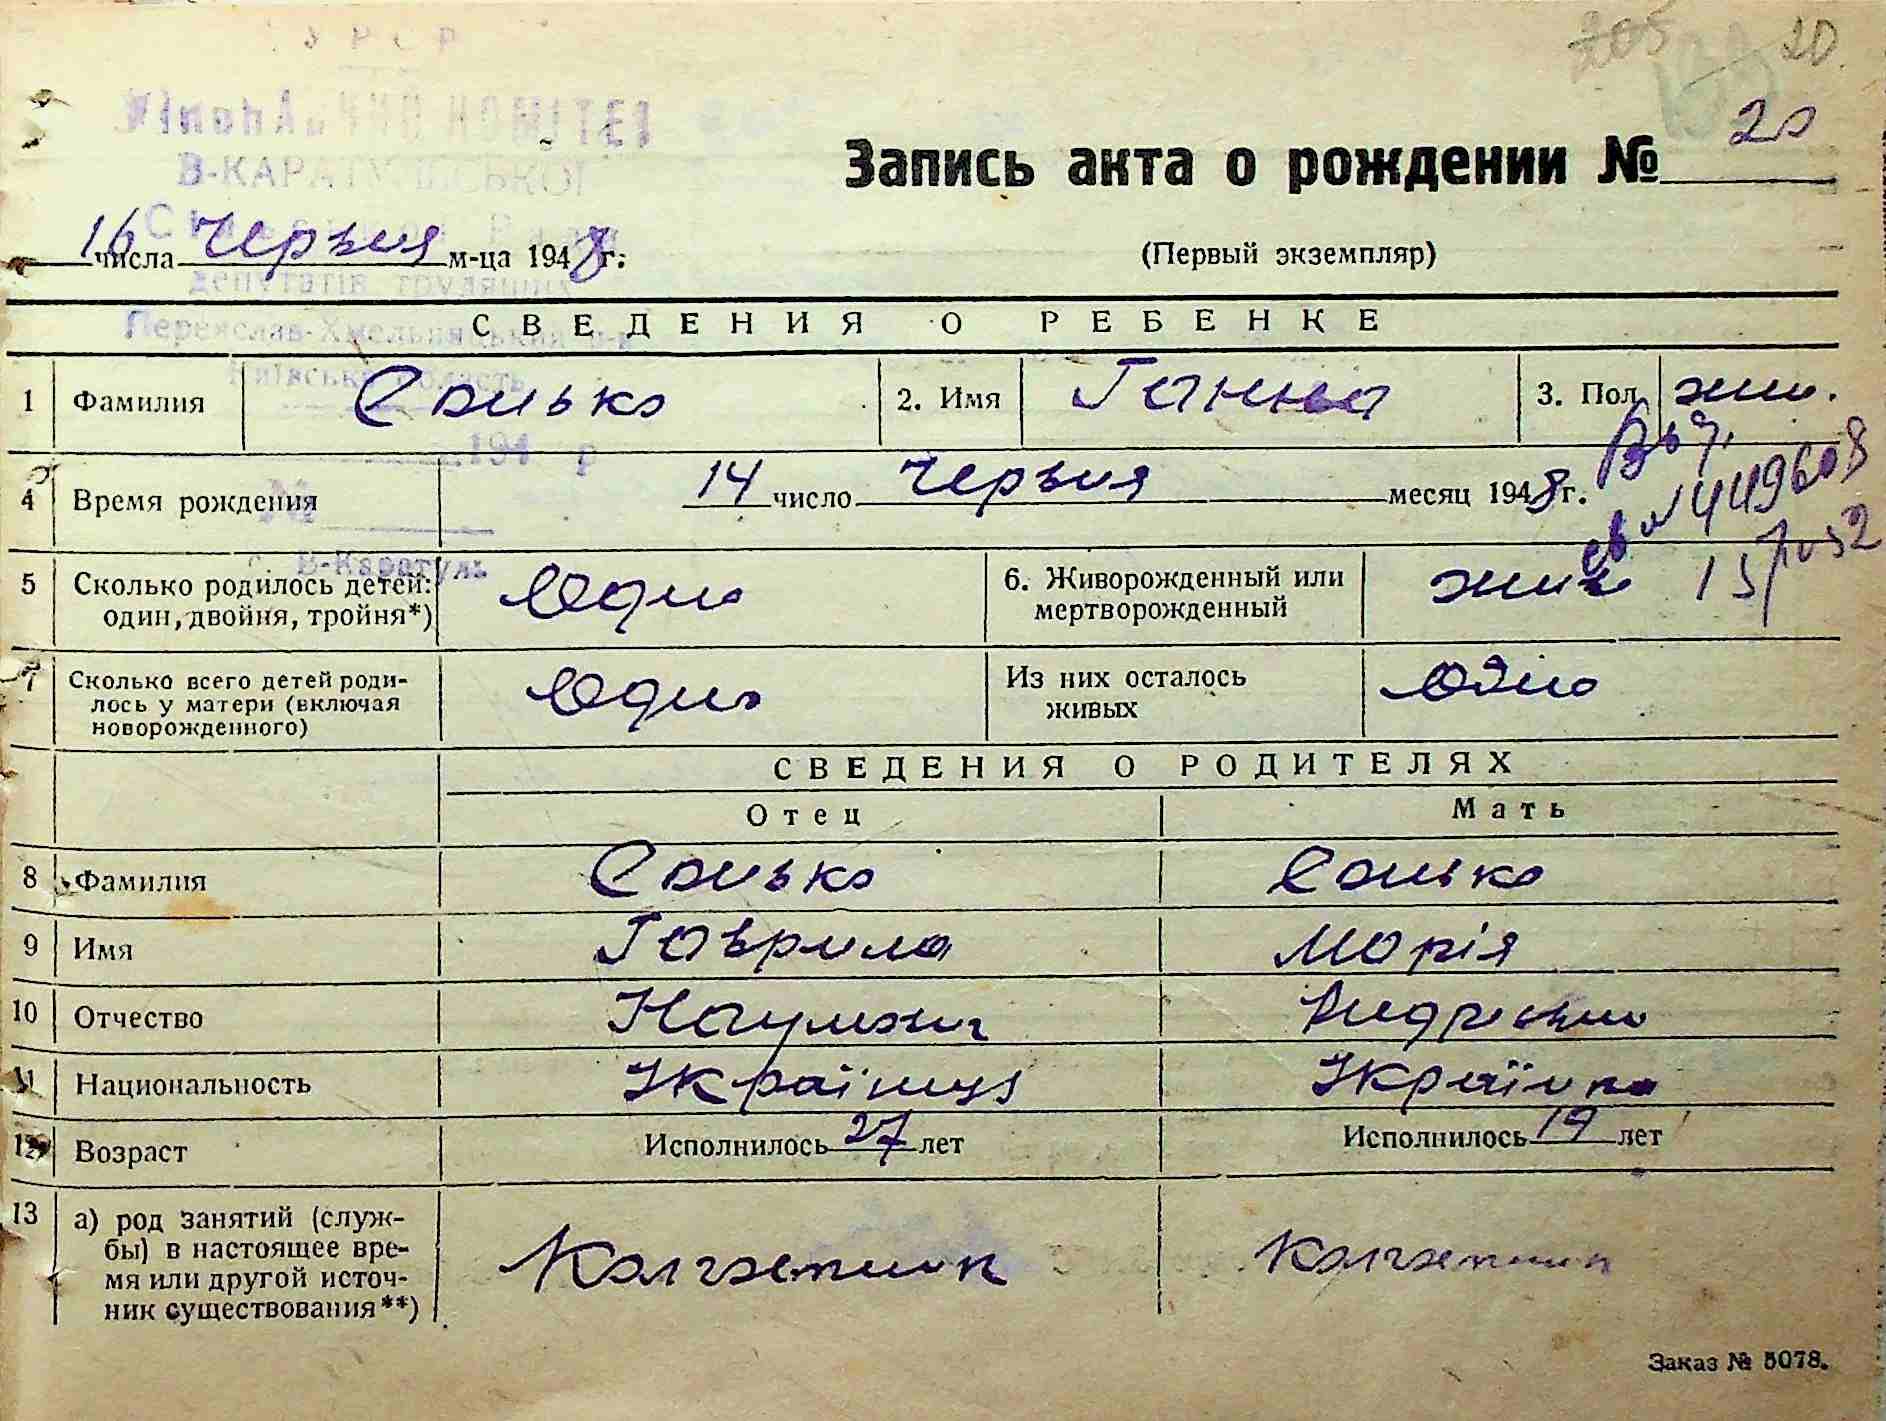 УРСР
205 133 20
ВИКОНАВЧИЙ КОМІТЕТ
В-КАРАТУЛЬСЬКОЇ
Запись акта о рождении № 20
16 числа Червня м-ца 1948 г.
(Первый экземпляр)
депутатів трудящих
Переяслав-Хмельницький р-н
СВЕДЕНИЯ О РЕБЕНКЕ
Київська область
1 Фамилия Сонько 2. Имя Ганна 3. Пол жін.
194 р
4 Время рождения 14 число Червня месяц 1948 г.
№
св 449608
с. В-Каратуль
5 Сколько родилось детей: один, двойня, тройня*) Одно 6. Живорожденный или мертворожденный жив
7 Сколько всего детей родилось у матери (включая новорожденного) Одно Из них осталось живых Одно
СВЕДЕНИЯ О РОДИТЕЛЯХ
Отец Мать
8 Фамилия Сонько Сонько
9 Имя Гаврило Марія
10 Отчество Наумович
11 Национальность Українць Українка
12 Возраст Исполнилось 27 лет Исполнилось 19 лет
13 а) род занятий (служ-
бы) в настоящее вре-
мя или другой источ-
ник существования**) Колгоспник Колгоспник
Заказ № 5078.